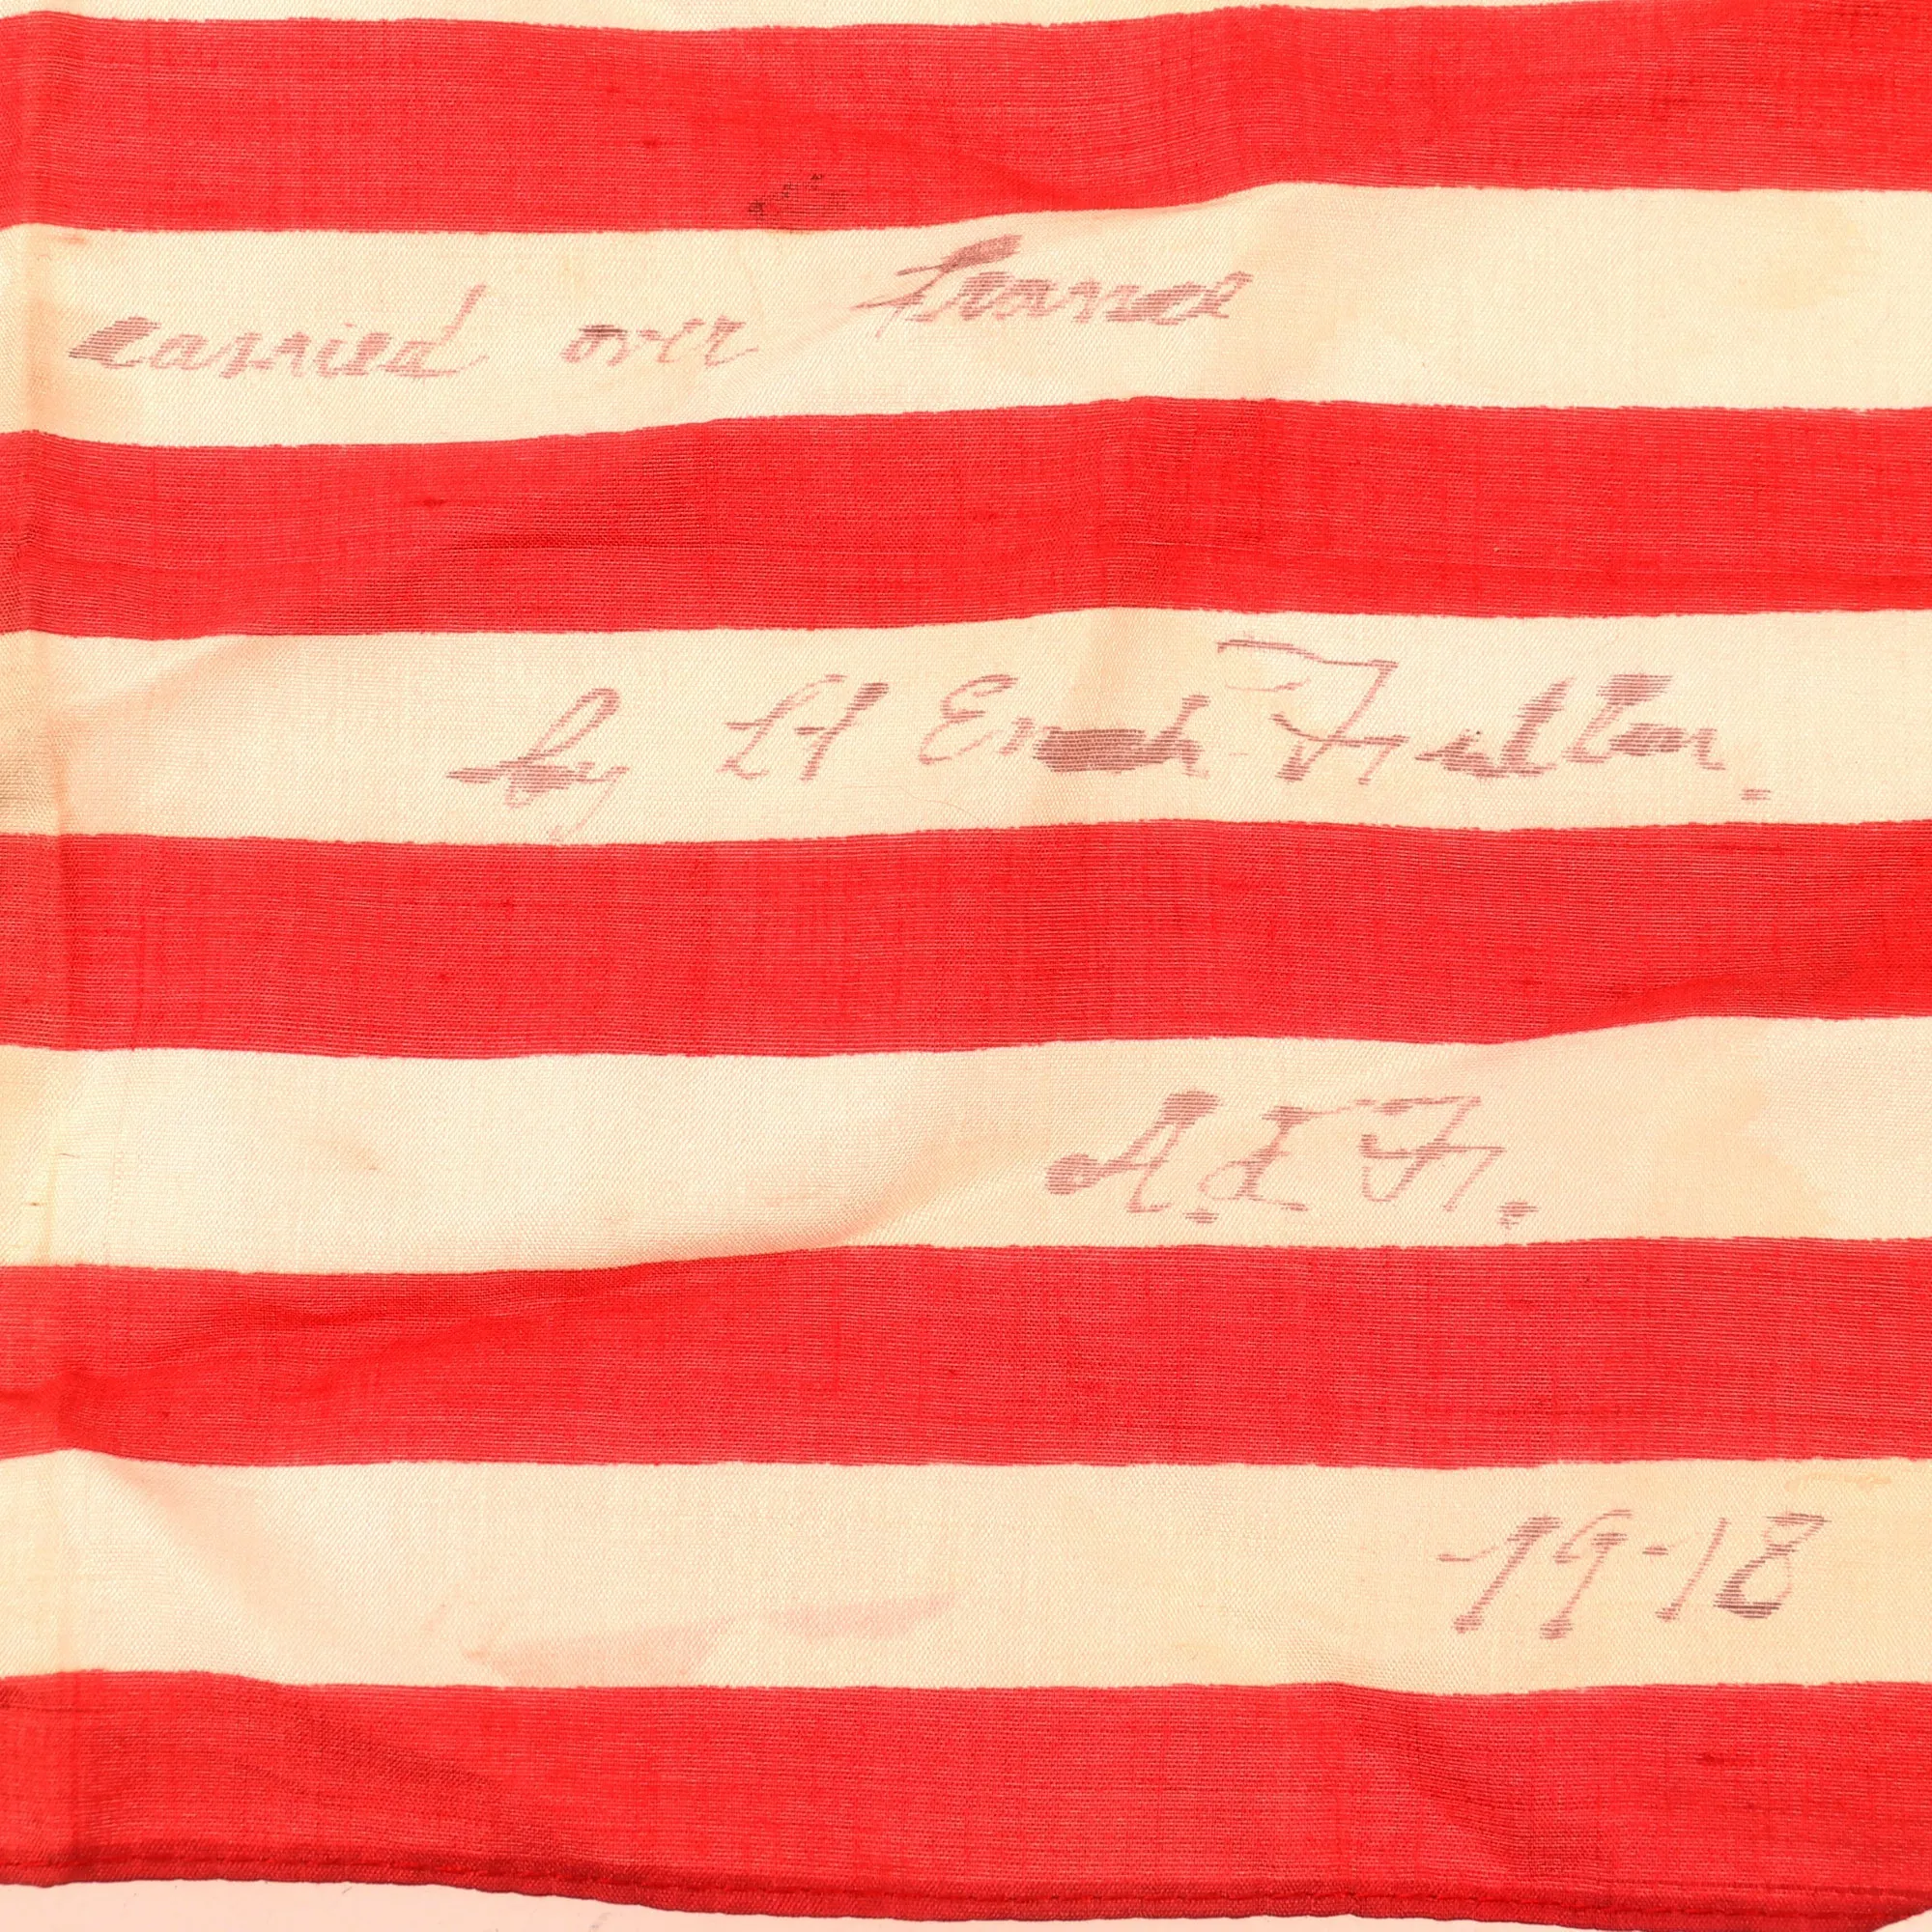 carried over france
by Lt Enoch Fuller.
A.E.F.
19-18